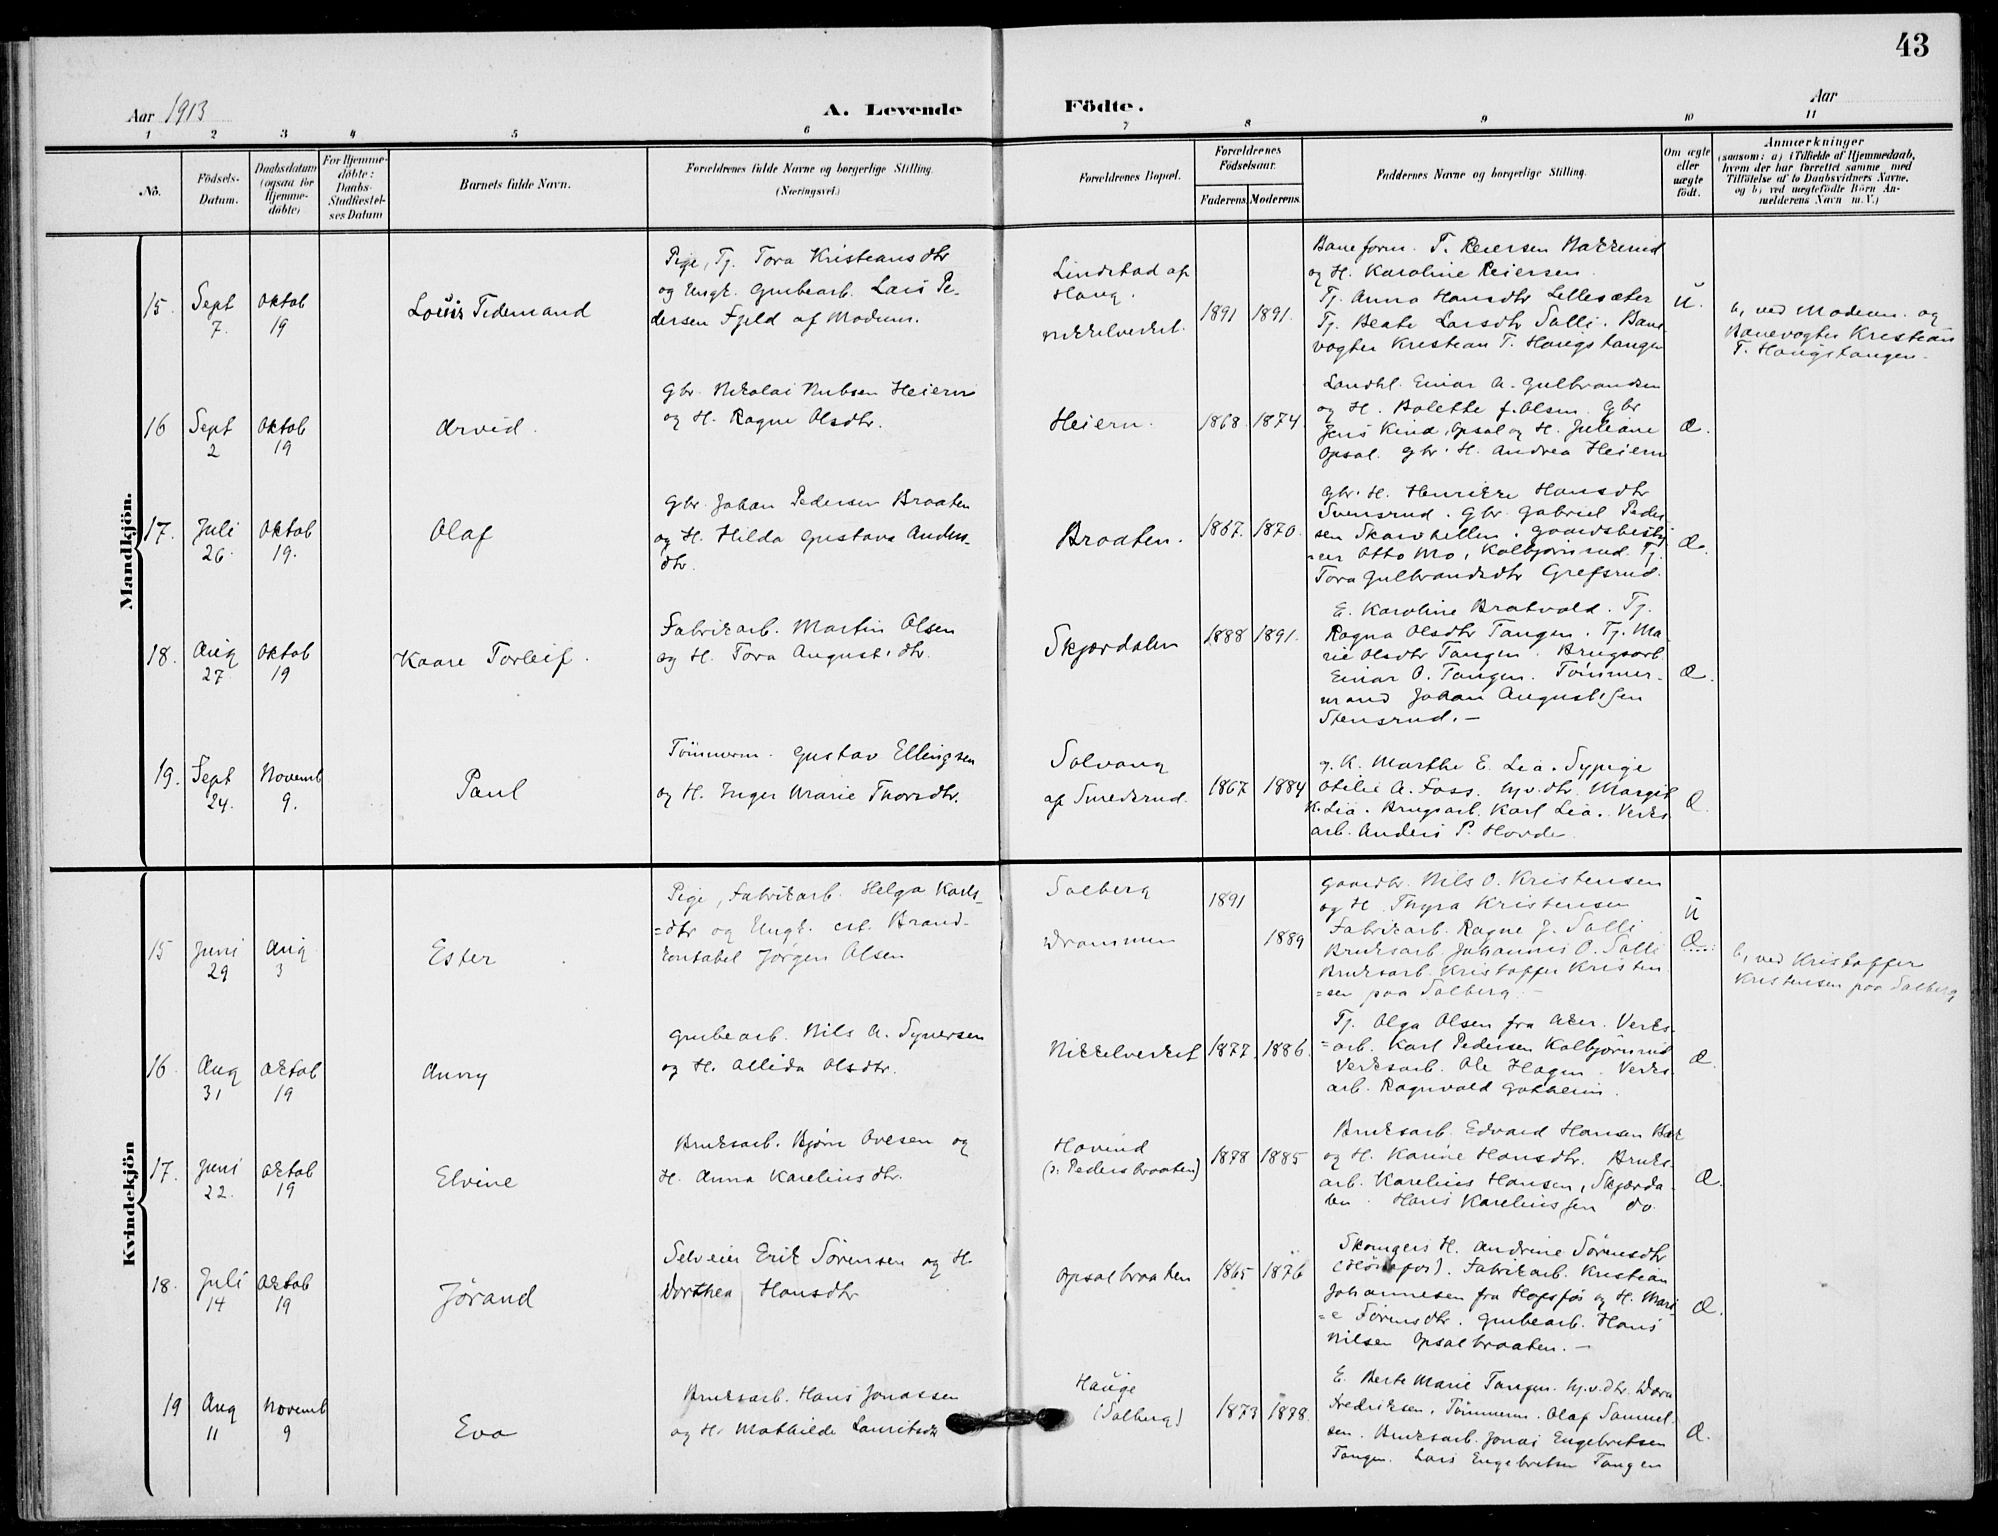 43
Aar 1913
A. Levende Födte.
Aar
1 2 3 4 5 6 7 8 9 10 11
No.
Födsels-Datum.
Daabsdatum (ogsaa for Hjemme-döbte)
For Hjemme-döbte: Daabs-Stadfæstel-ses Datum
Barnets fulde Navn.
Forældrenes fulde Navne og borgerlige Stilling.
(Næringsvei.)
Forældrenes Bopæl.
Forældrenes Födselsaar.
Faderens. Moderens.
Faddernes Navne og borgerlige Stilling.
Om ægte eller uægte födt.
Anmærkninger
(saasom: a) i Tilfælde af Hjemmedaab,
hvem der har forrettet samme, med
Tilföielse af to Daabsvidners Navne,
og b) ved uægtefödte Börn An-
melderens Navn m. V.)
Mandkjön.
15. Sept 7. Oktob 19 Louis Tidemand
Pige, Tj. Tora Kristiansdtr
og Ungk. Grubearb. Lars Pe-
dersen Fjeld af Modum.
Lindstad af
Haug.
Nikkelverket.
1891 1891.
Baneform. T. Reiersen Nakkerud
og H. Karoline Reiersen.
Tj. Anna Hansdtr Lillesæter
Tj. Beate Larsdtr Solli. Bane-
vogter Kristian T. Haugstangen
U.
b, ved Moderen og
Banevogter Kristian
T. Haugstangen.
16 Sept 2 Oktob 19 Arvid.
Gbr. Nikolai Nubsen Heiern
og H. Ragne Olsdtr.
Heiern.
1868. 1874.
Landhl. Einar A. Gulbrandsen
og H. Bolette f. Olsen. Gbr
Jens Kind, Opsal og H. Juliane
Opsal. Gbr. H. Andrea Heiern
Æ.
17. Juli 26. Oktob 19. Olaf
Gbr. Johan Pedersen Braaten
og H. Hilda Gustava Anders-
dtr.
Braaten.
1867. 1870.
Gbr. H. Henrikke Hansdtr
Svensrud. Gbr. Gabriel Peder-
sen Skarvhellen. Gaardsbesty-
=rer Otto Mo, Kolbjørnrud. Tj.
Tora Gulbrandsdtr Grefsrud.
Æ.
18. Aug 27. Oktob 19 Kaare Torleif.
Fabrikarb. Martin Olsen
og H. Tora August'dtr.
Skjærdalen
1888 1891.
E. Karoline Bratvold. Tj.
Ragna Olsdtr Tangen. Tj. Ma-
rie Olsdtr Tangen. Brugsarb.
Einar O. Tangen. Tømmer-
mand Johan August'sen
Stensrud. —
Æ.
19. Sept 24. Novemb 9. Paul
Tømmerm. Gustav Ellingsen
og H. Inger Marie Thorsdtr.
Solvang
af Smedsrud.
1867 1884
G. K. Marthe E. Lia. Sypige
Otilie A. Foss. Hj.v.dtr. Margit
K. Lia. Brugsarb. Karl Lia. Verks-
arb. Anders P. Hovde
Æ.
Kvindekjön
15 Juni 29 Aug 3 Ester
Pige, Fabrikarb. Helga Karls-
=dtr og Ungk. Brand-
konstabel Jørgen Olsen
Solberg
Drammen
1891
1889
Gaardbr. Nils O. Kristensen
og H. Thyra Kristensen
Fabrikarb. Ragne J. Solli
Bruksarb. Johannes O. Solli
Bruksarb. Kristoffer Kristen-
=sen paa Solberg. —
U
Æ
b, ved Kristoffer
Kristensen paa Solberg
16. Aug 31 Oktob 19 Anny
Grubearb. Nils A. Syversen
og H. Allida Olsdtr.
Nikkelverket
1877. 1886.
Tj. Olga Olsen fra Aker. Verks-
=arb. Karl Pedersen Kolbjørnrud
Verksarb. Ole Hagen. Verks-
arb. Ragnvald
Æ.
17. Juni 22. Oktob 19 Elvine
Bruksarb. Bjørn Ovesen og
H. Anna Karelius dtr.
Hovind
(v. Pedersbraaten)
1878 1885
Bruksarb. Edvard Hansen Bæk
og H. Karine Hansdtr. Bruks-
arb. Karelius Hansen, Skjærda-
len. Hans Kareliussen do
Æ.
18. Juli 14 Oktob 19 Jørand
Selveier Erik Sørensen og H
Dorthea Hansdtr
Opsalbraaten
1865 1876
Skomagers H. Andrine Sørensdtr
(Hönefos). Fabrikarb. Kristian
Johannesen fra Hofsfos og H. Mari-
=e Sørensdtr. Grubearb. Hans
Nilsen Opsalbraaten. —
Æ.
19 Aug 11 Novemb 9 Eva
Bruksarb. Hans Jonassen
og H. Mathilde Lauritsdtr
Hauge
(Solberg)
1873 1878.
E. Berte Marie Tangen. Hj.v.dtr. Dora
Fredriksen, Tømmerm. Olaf Samuel-
sen. Bruksarb. Jonas Engebretsen
Tangen. Lars Engebretsen Tangen
Æ.